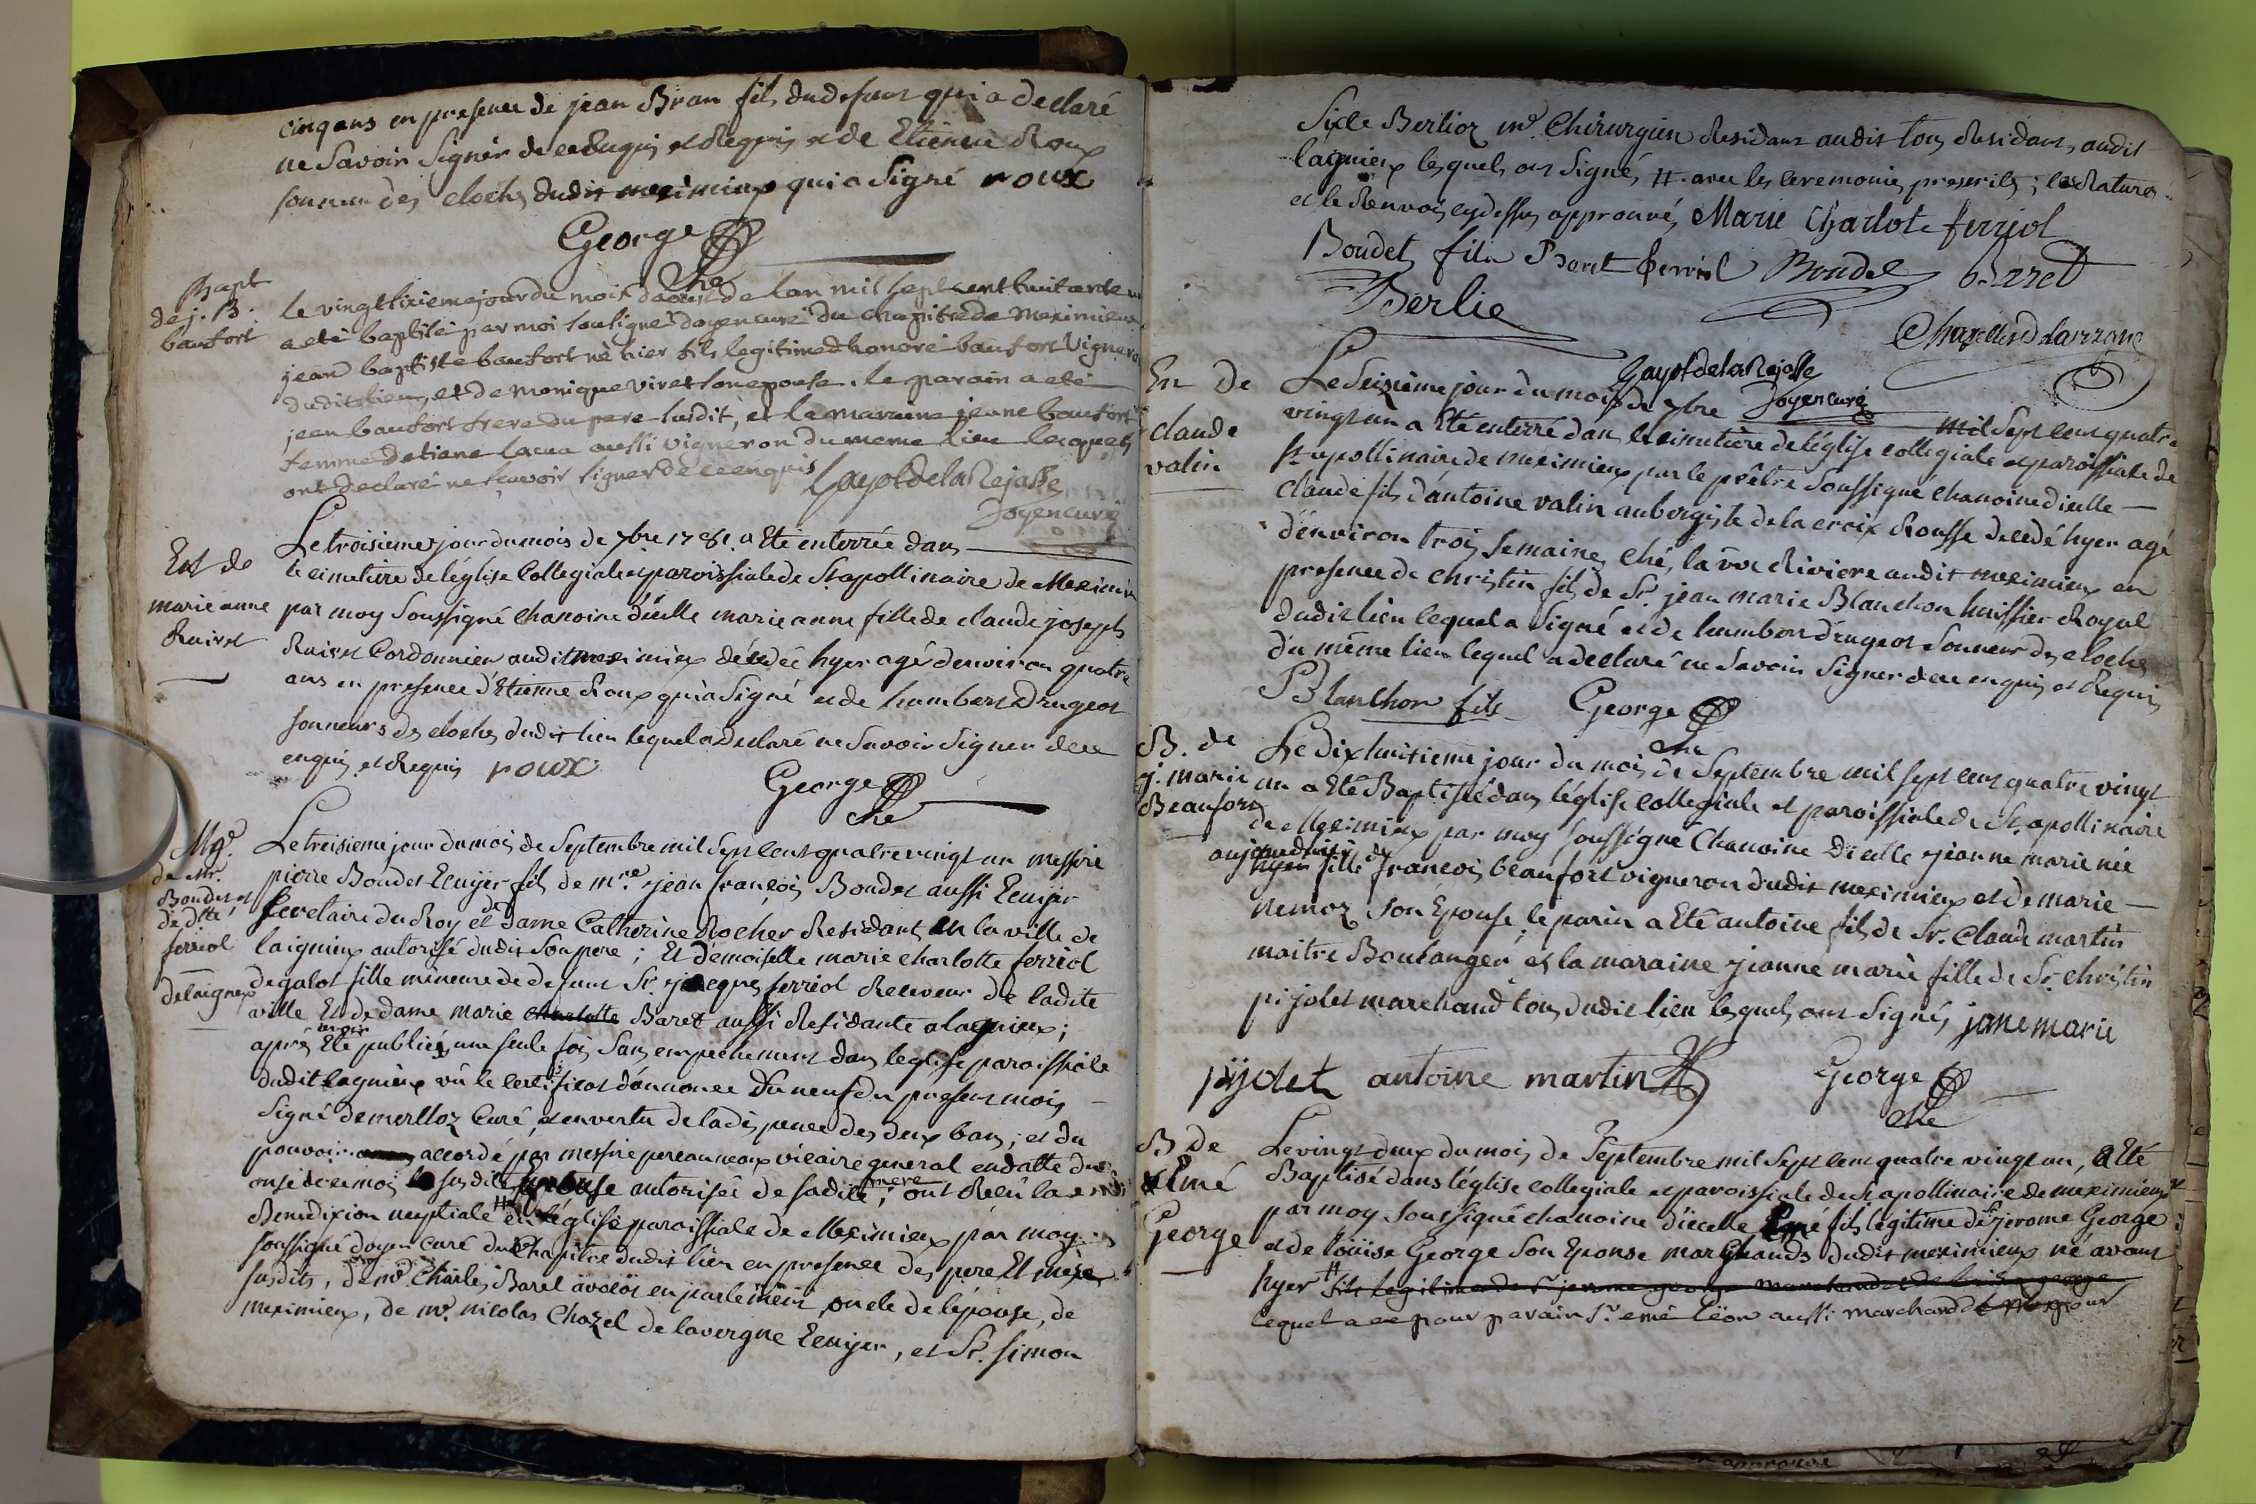 cinq ans en presence de jean Bran fils du defunt qui a declaré
ne Savoir Signer de ce Enquis et Requis et de Etienne Roux
sonneur des cloches dudit meximieux qui a Signé roux
George
che
Bapt
de j. B.
baufort
le vingt sixieme jour du mois daoust de lan mil sept cent huitante un
a eté baptisé par moi soussigné doyen curé du chapitre de Meximieux
jean baptiste baufort né hier fils legitime dhonoré baufort Vigneron
dudit lieu, et de monique viret son epouse. le parain a eté
jean baufort frere du pere susdit, et la maraine jeane baufort
femme detiene lacua aussi vigneron du meme lieu lesquels
ont declaré ne scavoir signer de ce enquis Gayot de la Rejasse
Doyen curé
Ent de
marie anne
Ruivet
Le troisieme jour du mois de 7bre 1781. a Eté enterrée dans
le cimetiere de l'église Collegiale et paroissiale de St. apollinaire de Meximieux
par moy Soussigné chanoine d'icelle marie anne fille de claude joseph
Ruivet Cordonnier audit meximieux décédée hyer agé denviron quatre
ans en presence d'Etienne Roux qui a Signé et de humbert Drugeot
sonneurs des cloches dudit lieu lequel a Declaré ne Savoir Signer de ce
enquis et Requis roux
George
che
Mge.
de Mr.
Boudet et
de dlle
ferriol
de laigneux
Le treisieme jour du mois de Septembre mil Sept cent quatre vingt un messire
pierre Boudet Ecuijer fils de mre. jean françois Boudet aussi Ecuijer
Secretaire du Roy et dame Catherine Rocher Residant en la ville de
laignieux autorisé dudit Son pere ; Et demoiselle marie charlotte ferriol
degalot fille mineure de defunt Sr. jacques ferriol Receveur de ladite
ville Et de dame marie charlotte Baret aussi Residante a lagnieux ;
après avoir Eté publiés une seule fois Sans empechement dans l'eglise paroissiale
dudit lagnieux vû le certificat d'annonce Du neuf du présent mois
Signé demerlloz Curé, et en vertu de la dispence des deux bans ; et du
pouvoir accordé par messire pereauneaux vicaire general en datte du
onse de ce mois la susdite Epouse autorisée de sadite mere ; ont Recû la
Benediction nuptiale # en l'église paroissiale de Meximieux par moy
soussigné doyen curé du Chapitre dudit lieu en presence des pere Et mere
susdits, de mr. Charles Baret avocat en parlement oncle de l'épouse, de
meximieux, de mr. nicolas Chazel de lavergne Ecuijer, et Sr. Simon
Sixte Berlioz me. Chirurgien Residant audit tous Residant, audit
lagnieux lesquels ont Signé, # avec les ceremonies prescrites ; les Ratures
et le Renvois cydessus approuvés Marie Charlote ferriol
Boudet fils Baret ferriol Boudet Barret
Berlie
Chazelles D larzane
Gayot de la Rejasse
Doyen curé
En de
claude
valin
Le Seizieme jour du mois de 7bre mil Sept cent quatre
vingt un a Eté enterré dans le cimetière de l'église collegiale et paroissiale de
St. apollinaire de meximieux par le prêtre Soussigné chanoine d'icelle
claude fils d'antoine valin aubergiste de la croix Rousse decedé hyer agé
d'environ trois Semaines ché la vve Riviere audit meximieux en
presence de christin fils de Sr. jean marie Blanchon huissier Royal
dudit lieu lequel a Signé et de humbert drugeot Sonneur des cloches
du même lieu lequel a declaré ne Savoir Signer de ce enquis et Requis
Blanchon fils George
che
B. de
j. marie
Beaufort
Le Dix huitieme jour du mois de Septembre mil Sept cent quatre vingt
un a Eté Baptisée dans l'église collegiale et paroissiale de St. apollinaire
de Meximieux par moy Soussigné Chanoine D'icelle jeanne marie née
aujourdhui hyer fille de francois beaufort vigneron dudit meximieux et de marie
nemoz Son Epouse le parin a Eté antoine fils de Sr. Claude martin
maitre Boulanger et la maraine jeanne marie fille de Sr. christin
pijolet marchand tous dudit lieu lesquels ont Signés jane marie
pijolet antoine martin George
che
B de
Emé
George
Le vingt deux du mois de Septembre mil Sept cent quatre vingt un, a Eté
Baptisé dans l'église collegiale et paroissiale de St. apollinaire de meximieux
par moy Soussigné chanoine d'icelle Emé fils legitime de Sr. jerome George
et de loüise George Son Epouse marchands dudit meximieux né avant
hyer # fils legitime de Sr jerome george marchand et de louise george
lequel a eu pour parain Sr. emé leon aussi marchand et pour